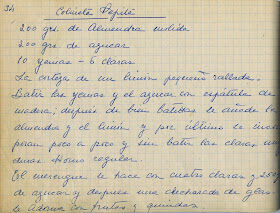 34
Colineta Pepita
200 grs. de Almendra molida
200 grs. de azucar
10 yemas - 6 claras
La corteza de un limón pequeño rallada.
Batir las yemas y el azucar con espátula de
madera; después de bien batidas se añade la
almendra y el limón y por último se incor
poran poco a poco y sin batir las claras mon
tadas Horno regular.
El merengue se hace con cuatro claras y 200 g
de azucar y despues una cucharada de glas
se adorna con frutas y guindas